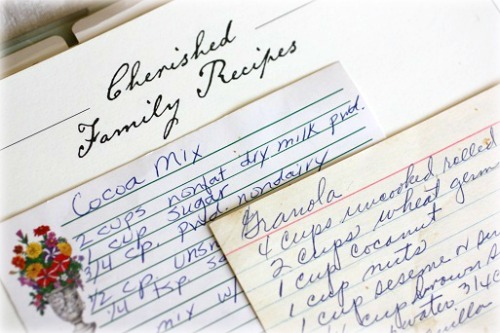 Cherished
Family Recipes
Cocoa Mix
2 cups nonfat dry milk pwd.
1 cup sugar
3/4 cp. pwd. nondairy
1/2 cp. uns
1/4 tsp
mix w/
Granola
4 cups uncooked rolled
2 cups wheat germ
1 cup coconut
1 cup nuts
1 cup sesame
cup brown
water 3/4